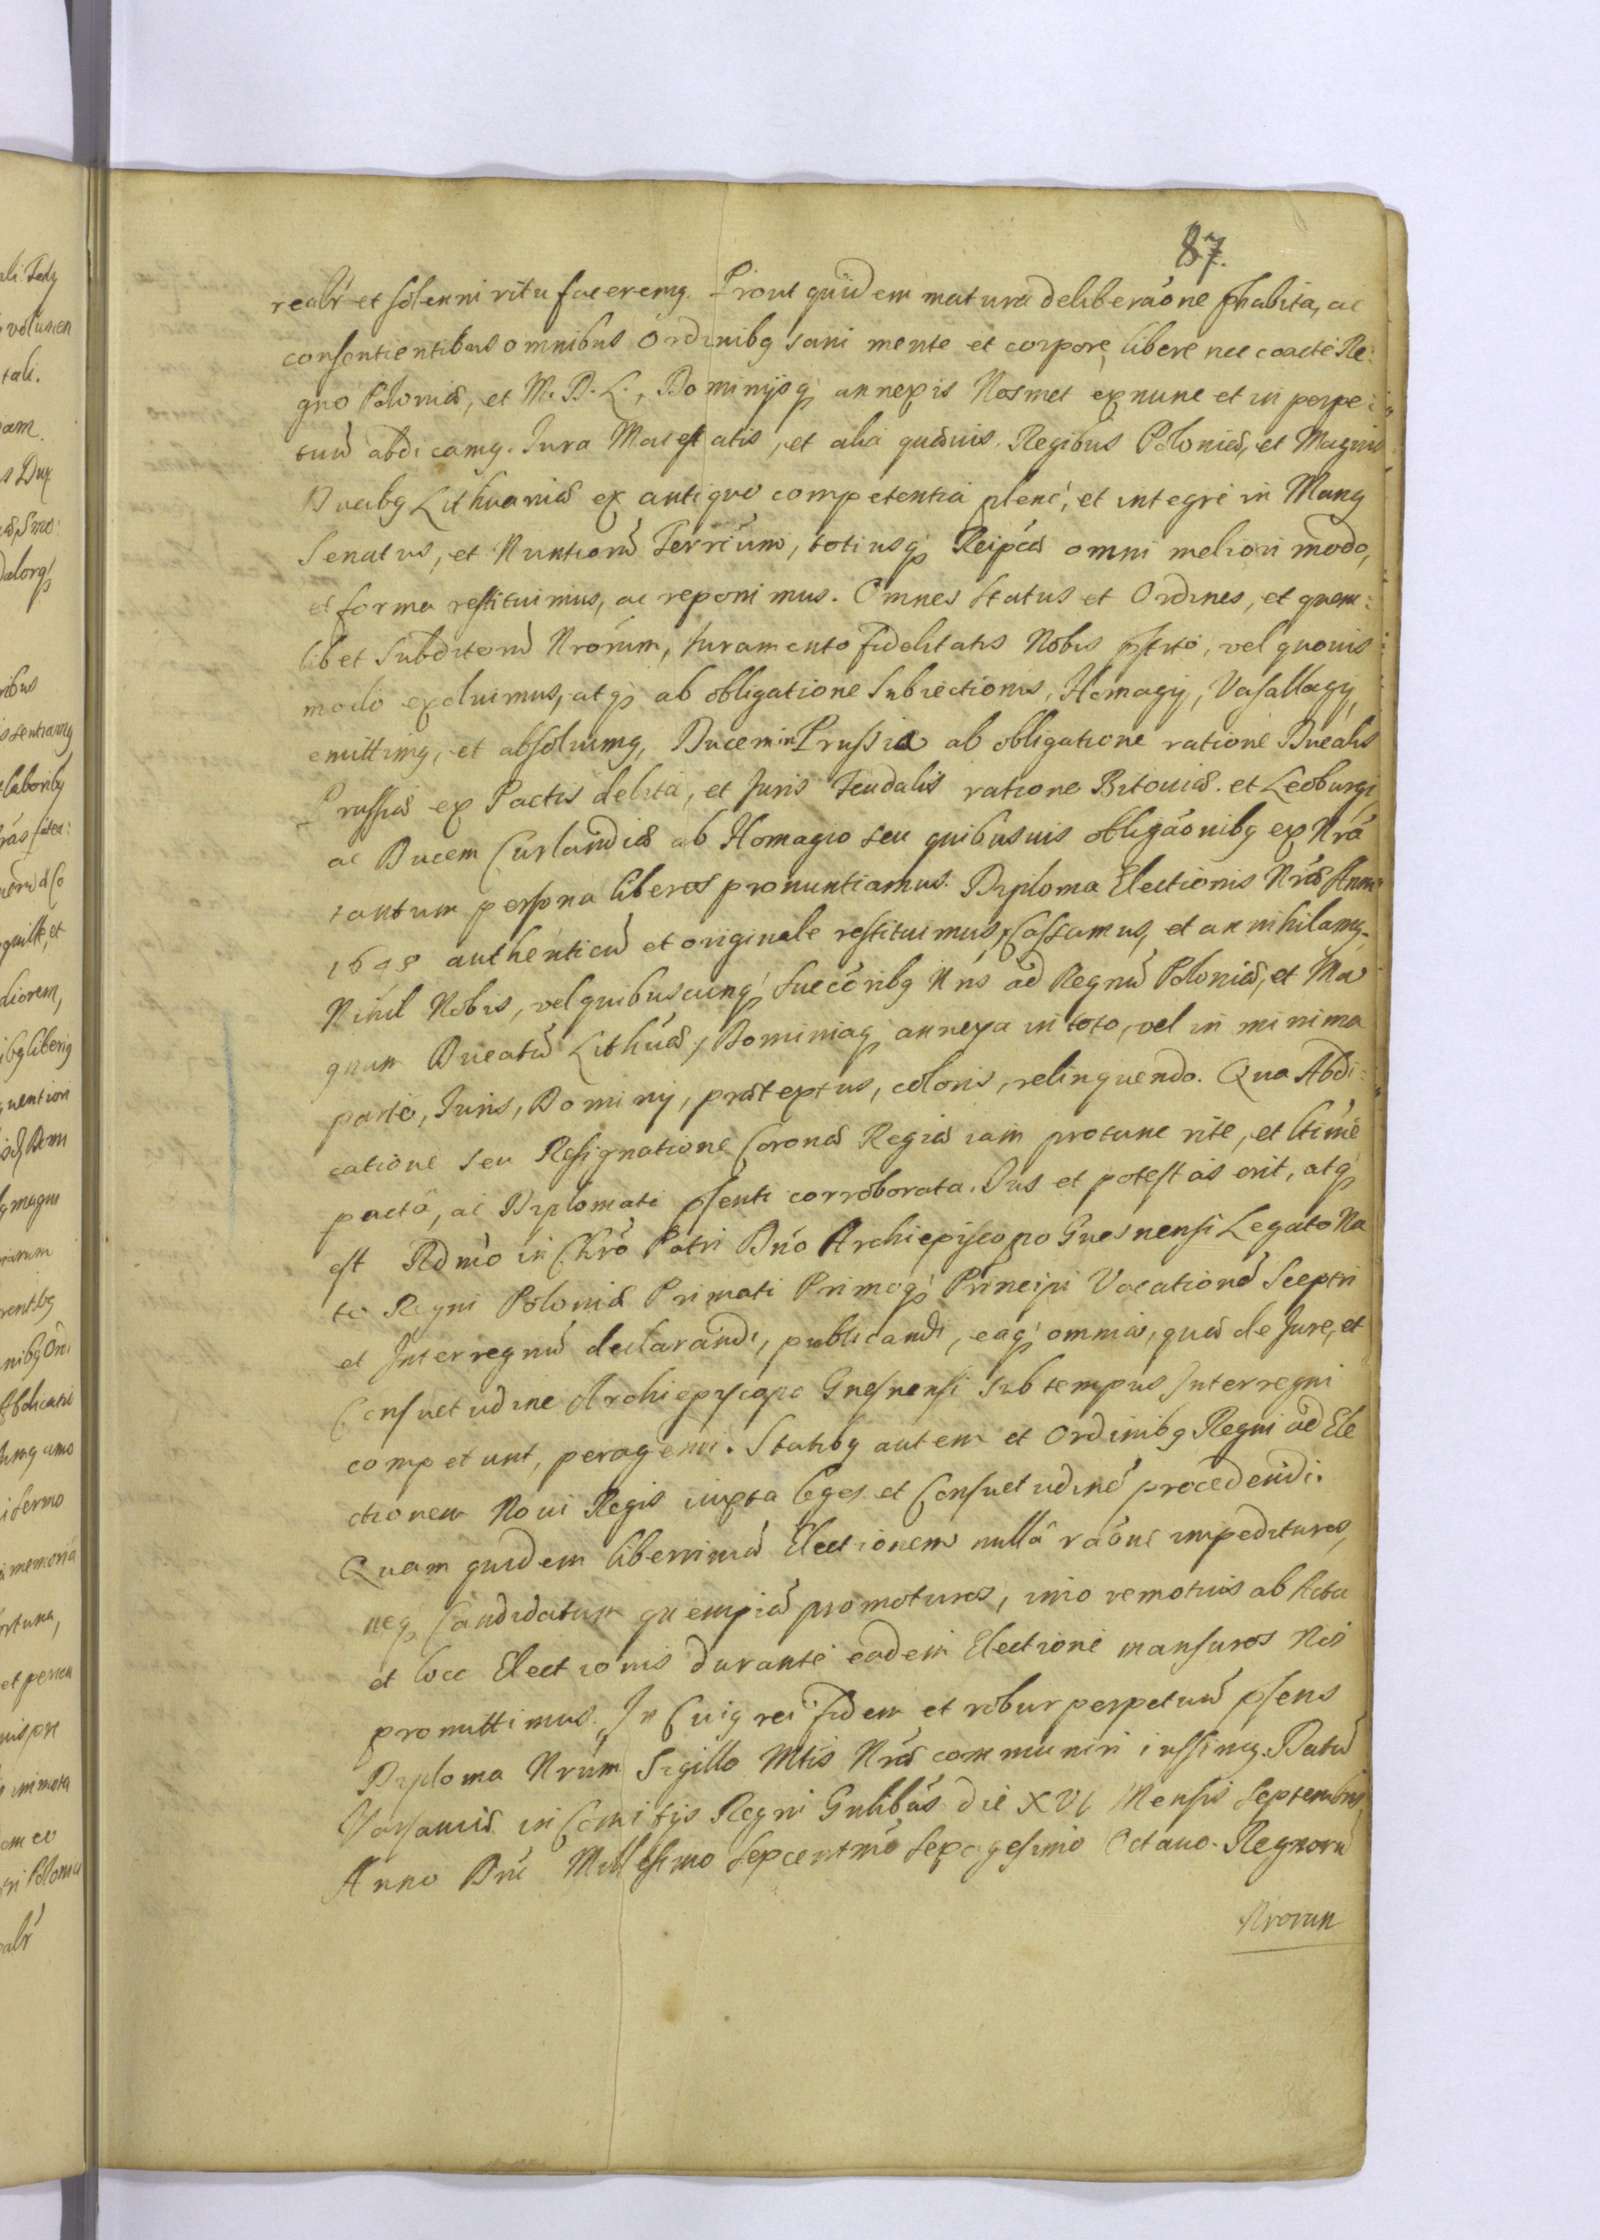 87.
realr et solenni ritu faceremq. Prout quidem matura deliberãone phabita, ac
consentientibus omnibus Ordinibq sani mente et corpore, libere nec coacte Re:
gno Poloniæ, et M. D. L., Dominijsq annexis Nosmet ex nunc et in perpe:
tuũ abdicamq. Jura Maiestatis, et alia quævis Regibus Poloniæ, et Magnis
Ducibq Lithvaniæ ex antiquo competentia plene, et integre in Manq
Senatus, et Nuntiorũ Terrium, totiusq Reipcæ omni meliori modo,
et forma restituimus, ac reponimus. Omnes Status et Ordines, et quem:
libet Subditorũ Nrorum, Juramento fidelitatis Nobis pstito, vel quovis
modo exoluimus, atq ab obligatione Subiectionis, Homagij, Vasallagij,
emittimq, et absoluimq, Ducem in Prussia ab obligatione ratione Ducalis
Prussiæ ex Pactis debita, et Juris Feudalis ratione Bitoviæ et Leoburgi
ac Ducem Curlandiæ ab Homagio seu quibusuis obligãonibq ex Nrã
tantum persona liberos pronuntiamus. Diploma Electionis Nræ Anni
1648 authenticũ et originale restituimus, Cassamus, et annihilamq.
Nihil Nobis, vel quibuscunq Succõribq Nris ad Regnũ Poloniæ, et Ma
gnum Ducatũ Lithuæ, Dominiaq annexa in toto, vel in minima
parte, Juris, Dominij, prætextus, coloris, relinquendo. Qua Abdi:
catione seu Resignatione Coronæ Regiæ iam protunc rite, et ltime
pacta, ac Diplomate psenti corroborata. Jus et potestas erit, atq
est Rdmo in Chro Patri Dno Archiepiscopo Gnesnensi Legato Na
to Regni Poloniæ Primati Primoq Principi Vacationẽ Sceptri
et Interregnũ declarandi, publicandi, eaq omnia, quæ de Jure, et
Consuetudine Archiepiscopo Gnesnensi sub tempus Interregni
competunt, peragendi. Statibq autem et Ordinibq Regni ad Ele
ctionem Noui Regis iuxta leges et Consuetudinẽ procedendi.
Quam quidem liberrimã Electionem nullâ raõne impedituros,
neq Candidatum quempiã promoturos, imo remotius ab Actu
et loco Electionis durante eadem Electione mansuros Nos
promittimus. In Cuiq rei fidem et robur perpetuũ psens
Diploma Nrum Sigillo Mtis Nræ communiri iussimq. Datũ
Varsaviæ in Comitijs Regni Gnlibus die XVI Mensis Septembris
Anno Dni Millesimo Sepcentmo Sexagesimo Octauo. Regnorũ
Nrorum